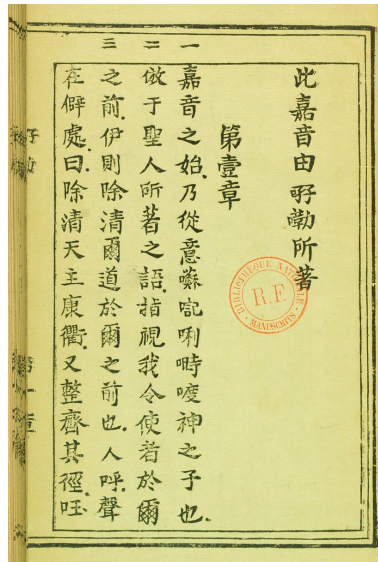 此嘉音由嘞所著
第壹章
一
嘉音之始.乃從意囌唎時神之子也.
二
倣于聖人所著之語.指視我令使者於爾
三
之前.伊則除清爾道於爾之前也.人呼.聲
在僻處.曰.除清天主康衢.又整齊其徑.
BIBLIOTHÈQUE NATIONALE
R.F.
MANUSCRITS